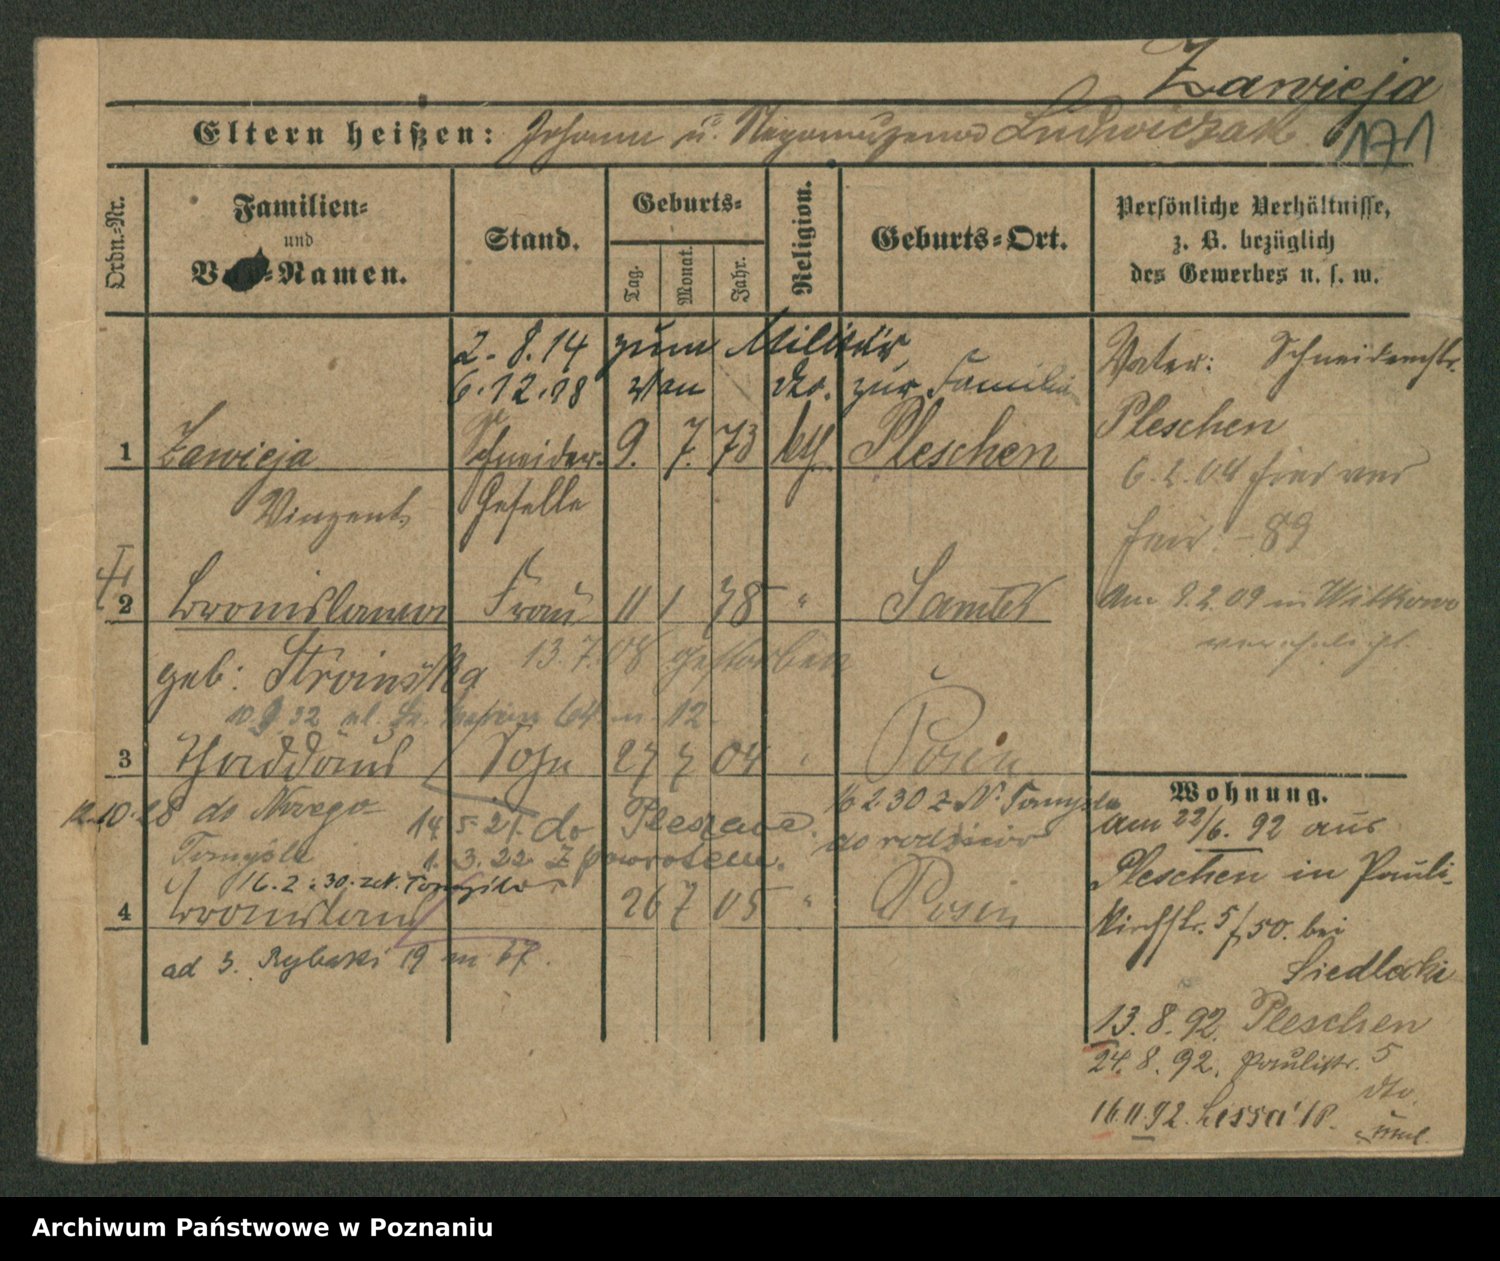 Zawieja
171
Eltern heißen: Johann u. Nepomuzena Ludwiczak
Ordn.-Nr.
Familien-
und
-Namen.
Stand.
Geburts-
Tag.
Monat.
Jahr.
Religion.
Geburts-Ort.
Persönliche Verhältnisse,
z. B. bezüglich
des Gewerbes u. s. w.
2. 8. 14 zum Militär
6. 12. 18 von do. zur Familie
1 Zawieja Schneider- 9. 7. 73 kth. Pleschen
Vinzent Geselle
2 Bronislawa Frau 11 1 78 " Samter
geb: Stroinska 13. 7. 08 gestorben
10 9 32 ul. 64 m. 12
3 Thaddäus Sohn 27 7 04 " Posen
12.10.28 do Nowego
Tomyśla
14 5 21. do Pleszewa.
1. 3. 22 z powrotem.
16 2. 30 z N. Tomyśla
do rodziców
16. 2. 30. z N. Tomyśla
4 Bronislaus 26 7 05 " Posen
ad 3. Rybaki 19 m 17.
Vater: Schneidermstr.
Pleschen
6. 2. 04
89
am 9. 2. 09 in Witkowo
verehelicht
Wohnung.
am 22/6. 92 aus
Pleschen in Pauli-
kirchstr. 5/50. bei
Siedlecki
13. 8. 92. Pleschen
24. 8. 92. Paulistr. 5
dto.
16. 11. 92.
Archiwum Państwowe w Poznaniu